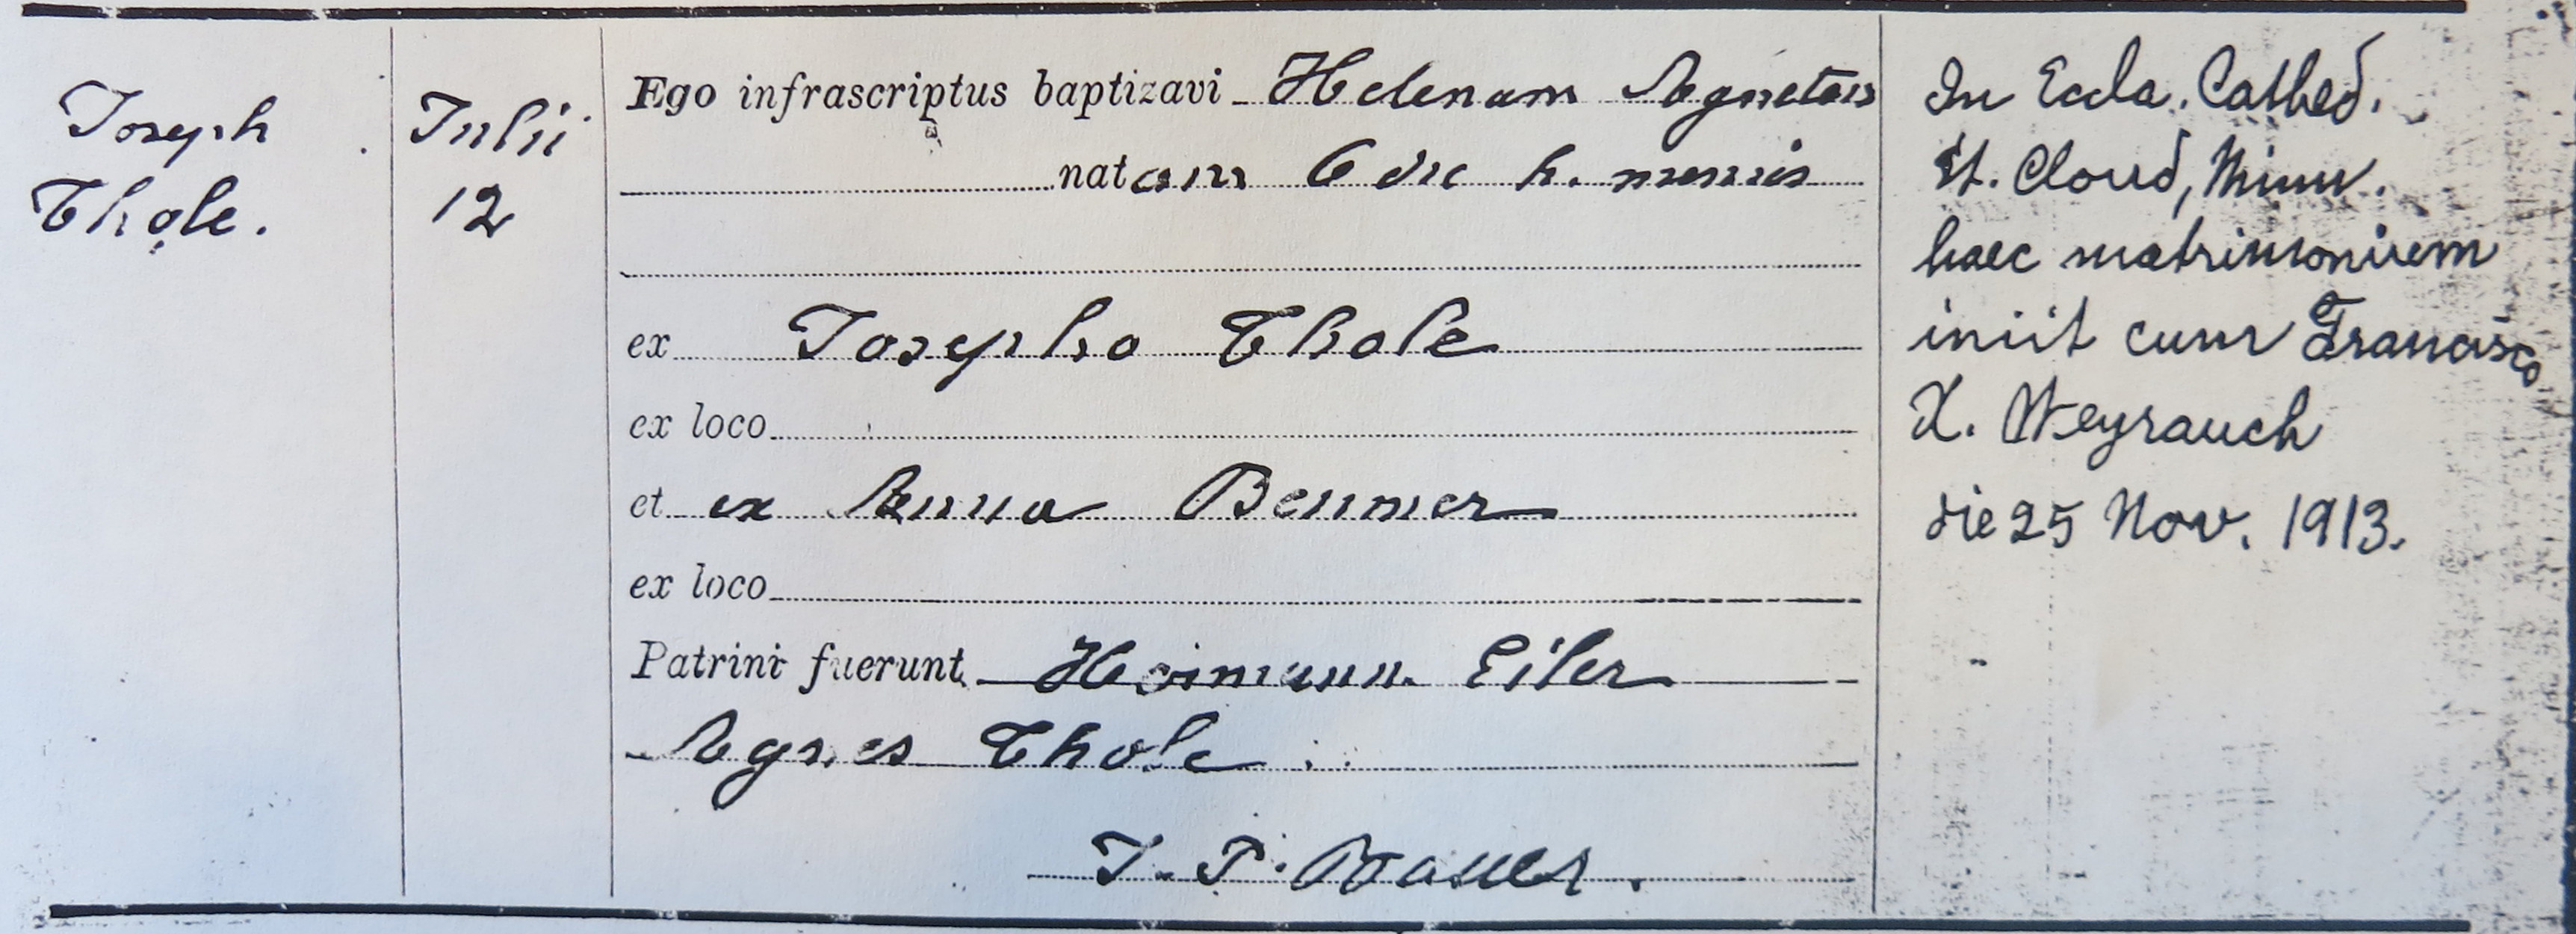 Joseph
Thole.
Julii
12
Ego infrascriptus baptizavi Helenam Agnetam
natam 6 die h. mensis
ex Josepho Thole
ex loco
et ex Anna Bemmer
ex loco
Patrini fuerunt Hermann Eiler
Agnes Thole
J. P. Bauer.
In Eccla. Cathed.
St. Cloud, Minn.
haec matrimonium
iniit cum Francisco
X. Weyrauch
die 25 Nov. 1913.